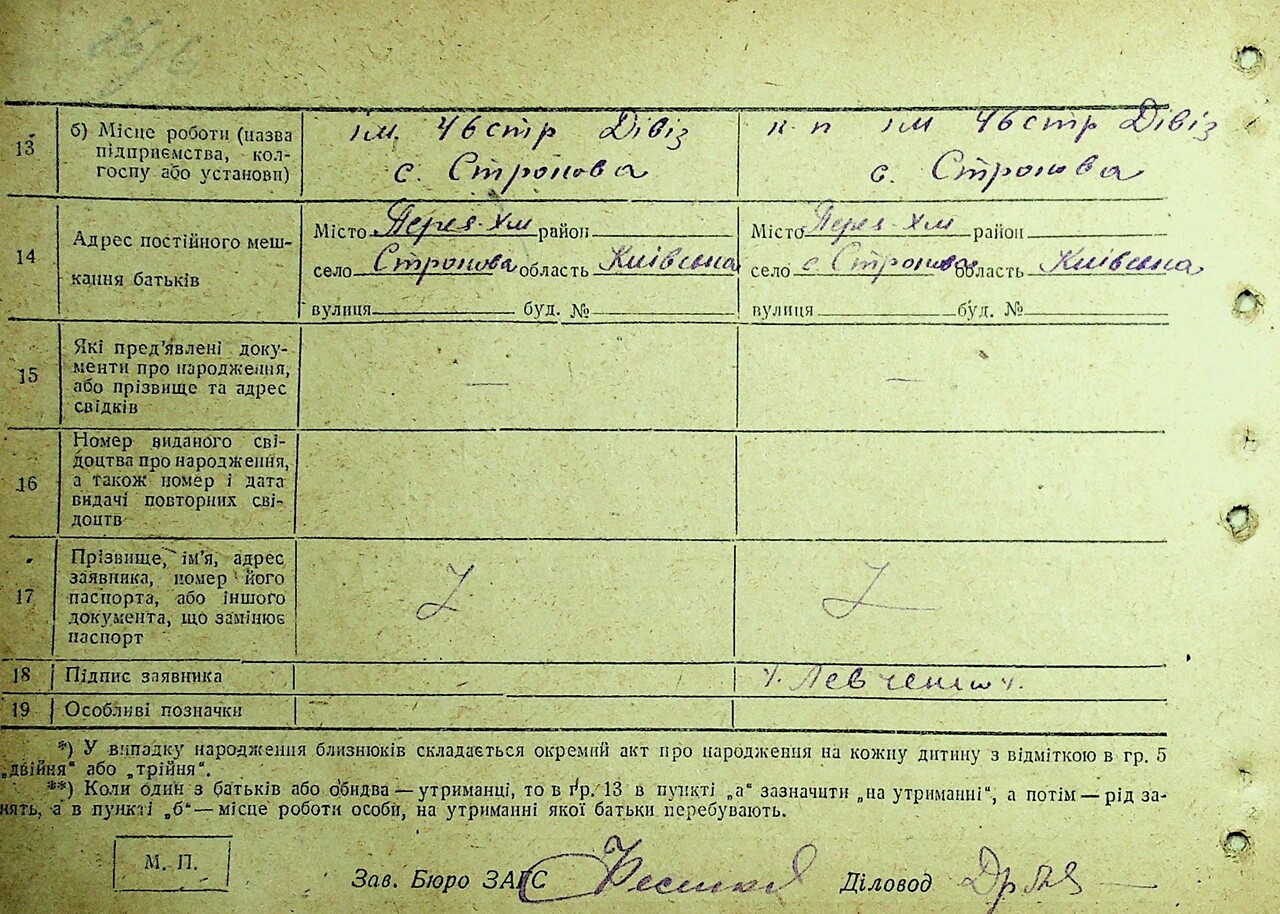 13 б) Місце роботи (назва підприємства, колгоспу або установи)
ім. 46 стр Дівіз
с. Строкова
к-п ім 46 стр Дівіз
с. Строкова
14 Адрес постійного мешкання батьків
Місто Перея-Хм район
село Строкова область Київська
вулиця буд. №
Місто Перея-Хм район
село с Строкова область Київська
вулиця буд. №
15 Які пред'явлені документи про народження, або прізвище та адрес свідків
— —
16 Номер виданого свідоцтва про народження, а також номер і дата видачі повторних свідоцтв
17 Прізвище, ім'я, адрес заявника, номер його паспорта, або іншого документа, що замінює паспорт
18 Підпис заявника
19 Особливі позначки
*) У випадку народження близнюків складається окремий акт про народження на кожну дитину з відміткою в гр. 5
„двійня" або „трійня".
**) Коли один з батьків або обидва — утриманці, то в гр. 13 в пункті „а" зазначити „на утриманні", а потім — рід за-
нять, а в пункті „б" — місце роботи особи, на утриманні якої батьки перебувають.
М. П.
Зав. Бюро ЗАГС Діловод